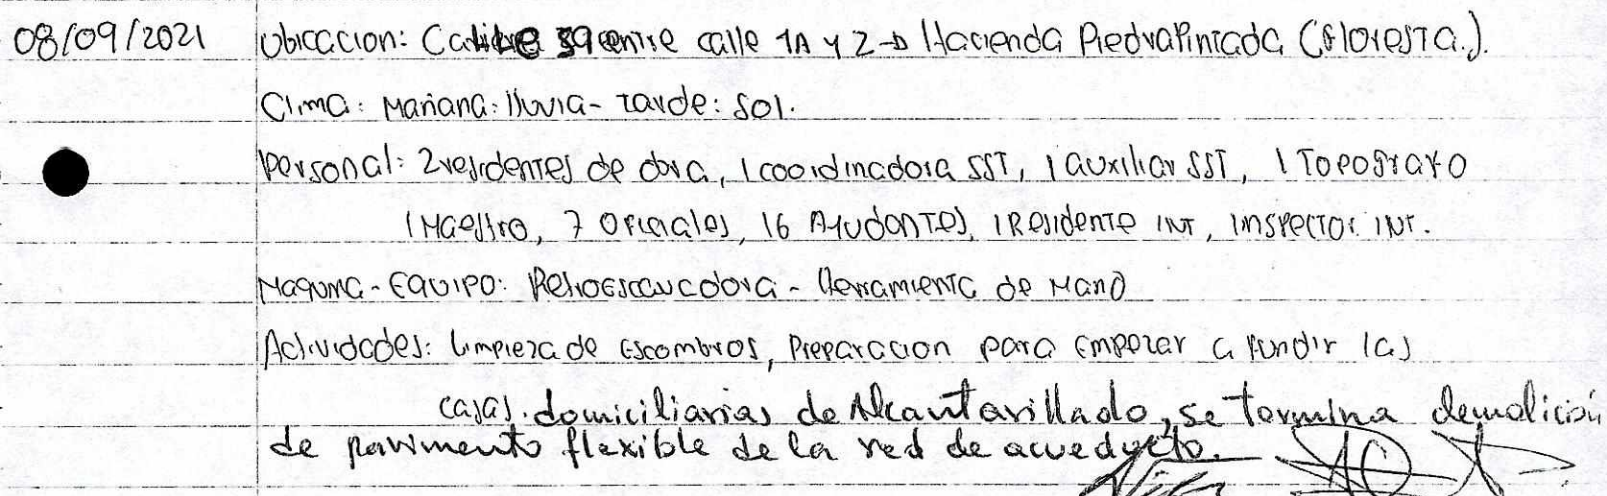 08/09/2021 Ubicacion: Calle 39 entre calle 1A y 2 → Hacienda PiedraPintada (Floresta.).
Clima: Mañana: lluvia - Tarde: Sol.
Personal: 2 residentes de obra, 1 coordinadora SST, 1 auxiliar SST, 1 Topografo
1 Maestro, 7 Oficiales, 16 Ayudantes, 1 Residente INT, inspector INT.
Maquina - Equipo: Retroescavadora - Herramienta de Mano
Actividades: limpieza de escombros, Preparacion para empezar a fundir las
cajas. domiciliarias de Alcantarillado, se termina demolición
de pavimento flexible de la red de acueducto.